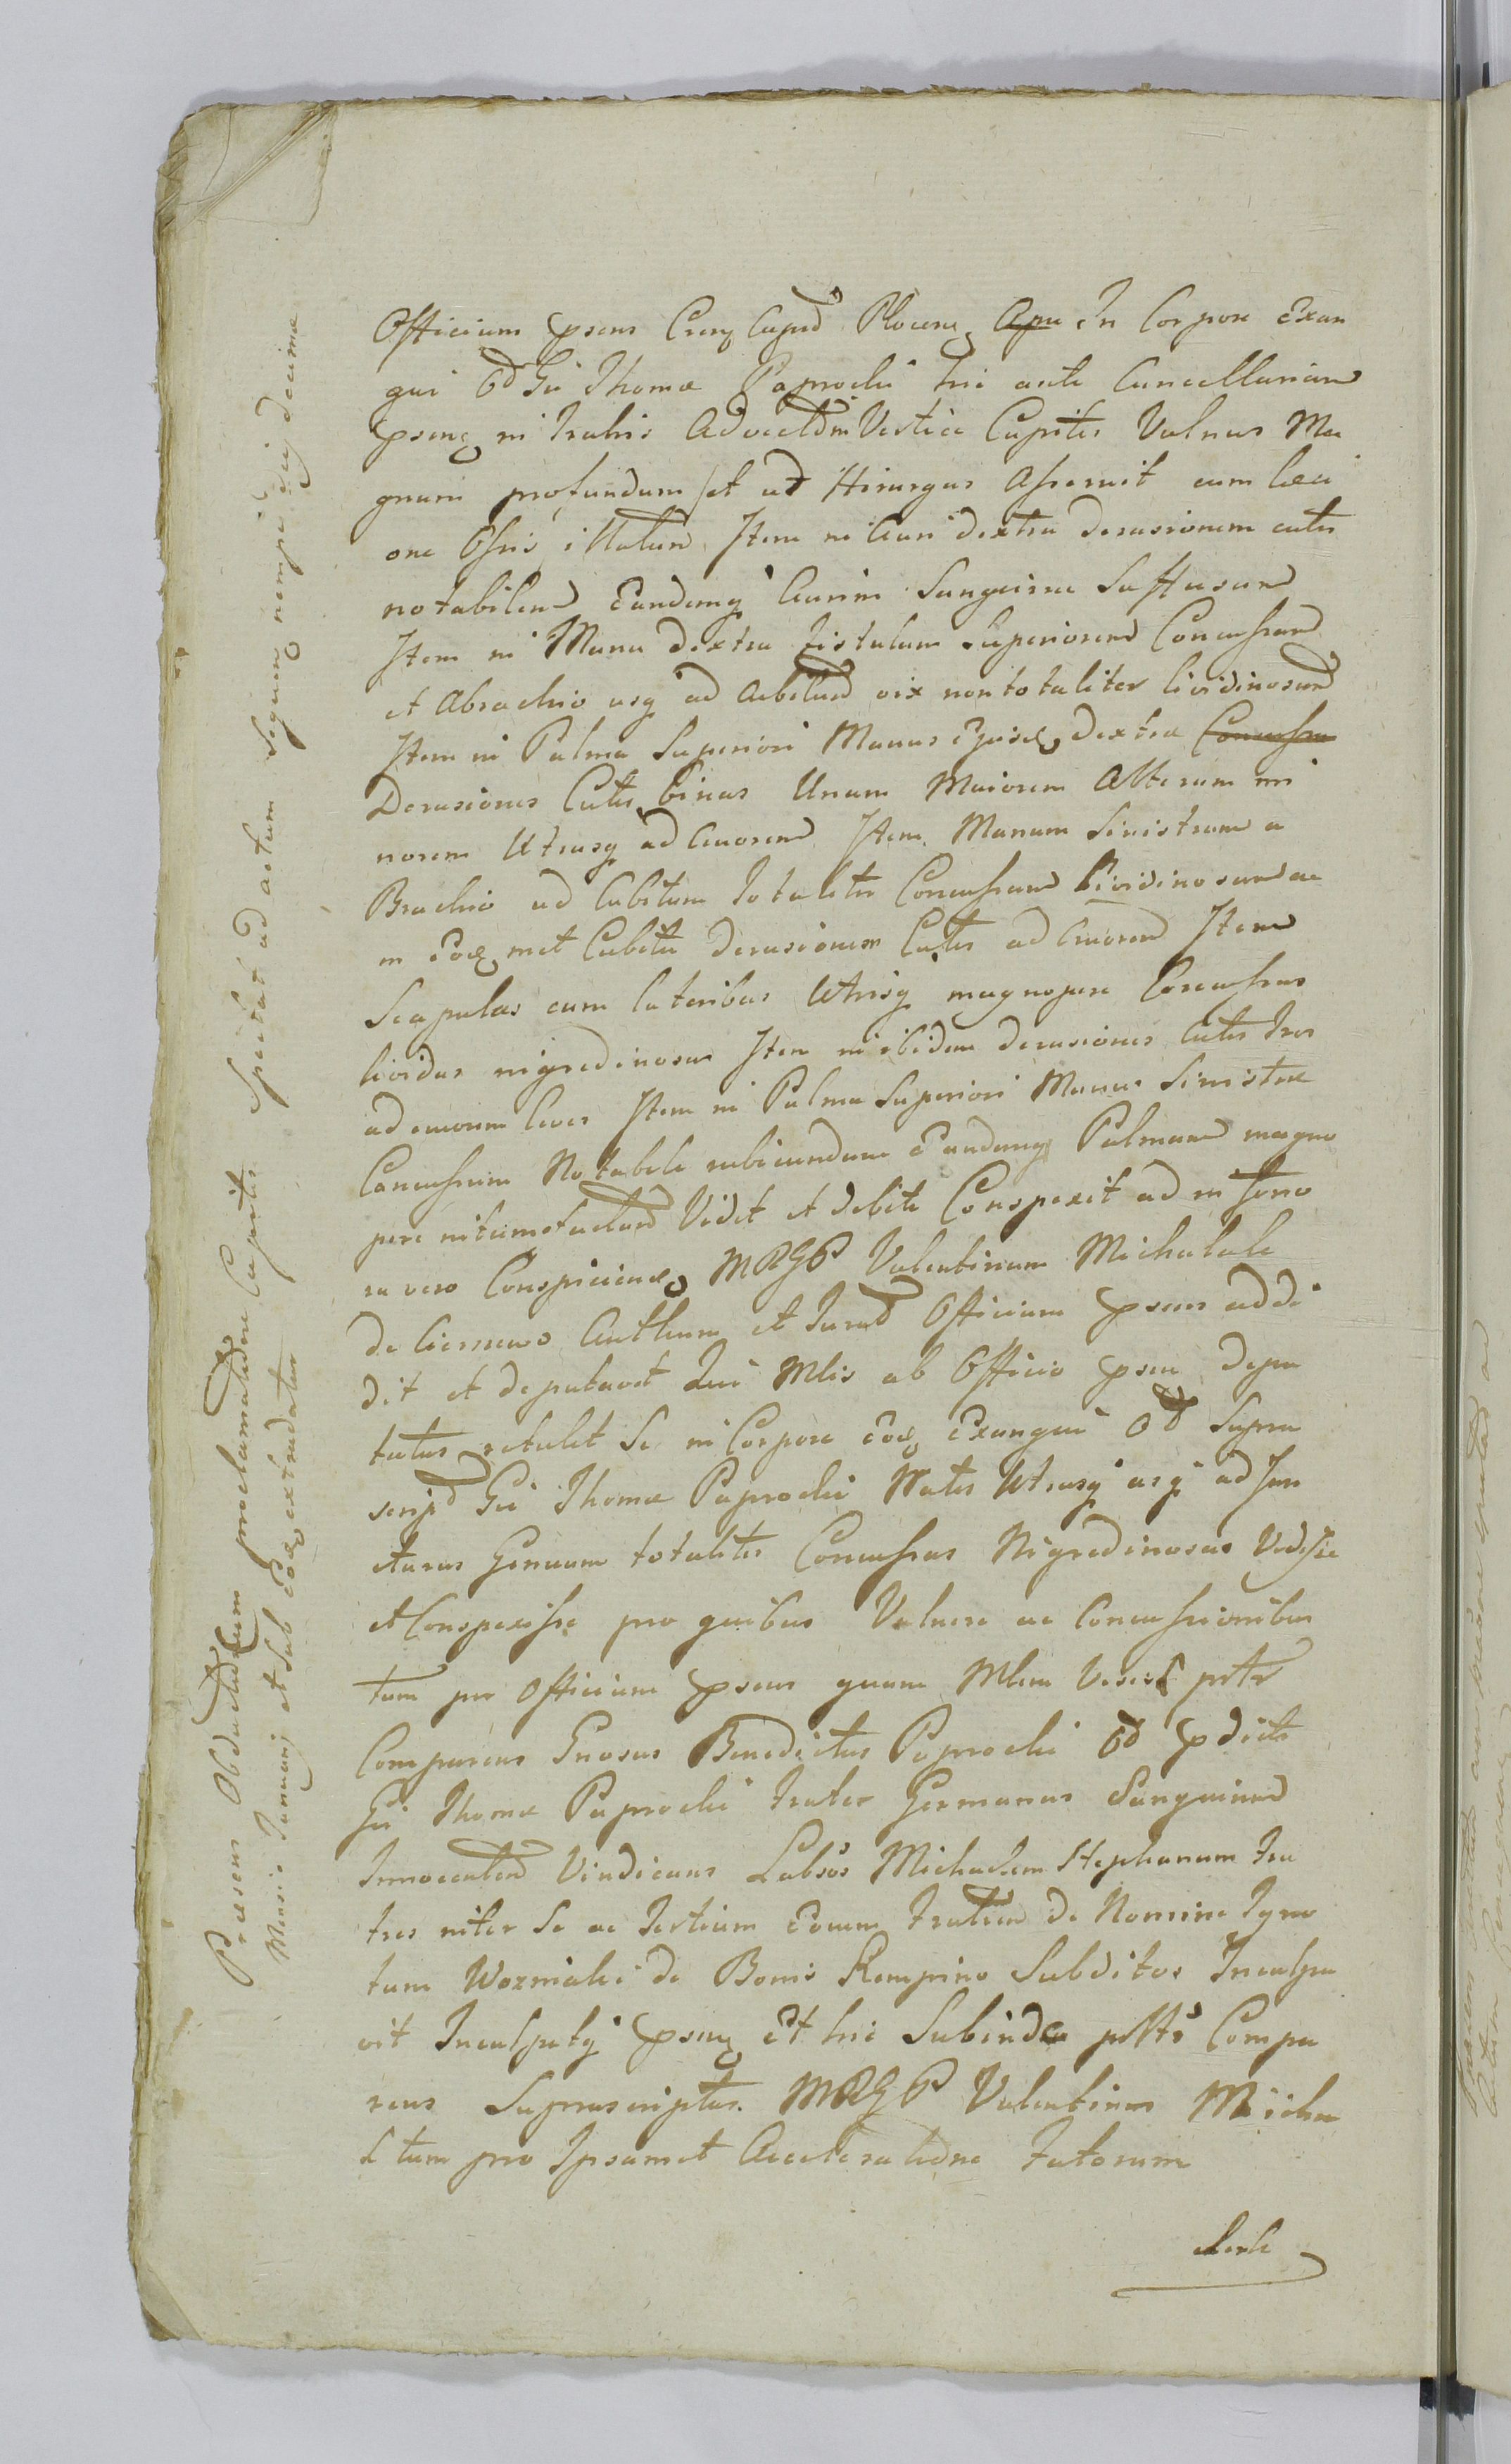 Officium psens Crens Captd Plocens Apu In Corpore Exan
gui Od Gsi Thomæ Paprocki hic ante Cancellariam
psens in trahis Advectdm Vertice Capitis Vulnus Ma
gnum profundum et ut Hirurgus Asseruit cum læsi
one Ossis illatum Item in Auri dextra Derasionem cutis
notabilem Eandemq Aurim Sanguine Suffusam
Item in Manu dextra fistulam Superiorem Concussam
et Abrachio usq ad Cubitum vix non totaliter lividinosam
Item in Palma Superiori Manus Ejusd dextræ Concussa
Derasiones Cutis binas Unam Maiorem Alteram mi
norem Utrasq ad Cruorem Item Manum Sinistram a
Brachio ad Cubitum Totaliter Concussam Lividinosam ac
in Eod met Cubitu Derasionem Cutis ad Cruorem Item
Scapulas cum lateribus Utrisq magnopere Concussas
lividas nigredinosas Item in ibidem Derasiones Cutis tres
ad cruorem leves Item in Palma Superiori Manus Sinistræ
Concussum Notabile rubicundum Eandemq Palmam magno
pere intumefactam Vidit et debite Conspexit ad inferio
ra vero Conspiciend MRGP Valentinum Michalak
de Ciemewo Authum et Jurad Officium psens addi
dit et deputavit Qui Mlis ab Officio psen depu
tatus retulit Se in Corpore Eod Exangui Od Supra
scrip Gsi Thomæ Paprocki Nates Utrasq usq ad Jun
cturas Genuum totaliter Concussas Nigredinosas Vidisse
et Conspexisse pro quibus Vulnere ac Concussionibus
tam per Officium psens quam Mlem Visis prtr
Comparens Gnosus Benedictus Paprocki Od pdicti
Gsi Thomæ Paprocki frater Germanus Sanguinem
Innocentem Vindicans Labsos Michaelem Stephanum fra
tres inter Se ac Tertium Eorum fratrem de Nomine Igno
tum Wozniaki de Bonis Rempino Subditos Inculpa
vit Inculpatq psens Et hic Subinde prtr Compa
rens Suprascriptus MRGP Valentinus Micha
l tum pro Ipsamet Acceleratidne fatorum
Præsens Obductdm proclamatdne Capitis Spectat ad actum sequen nempe diei decimæ
Mensis Januarij et sub Eod extradatur